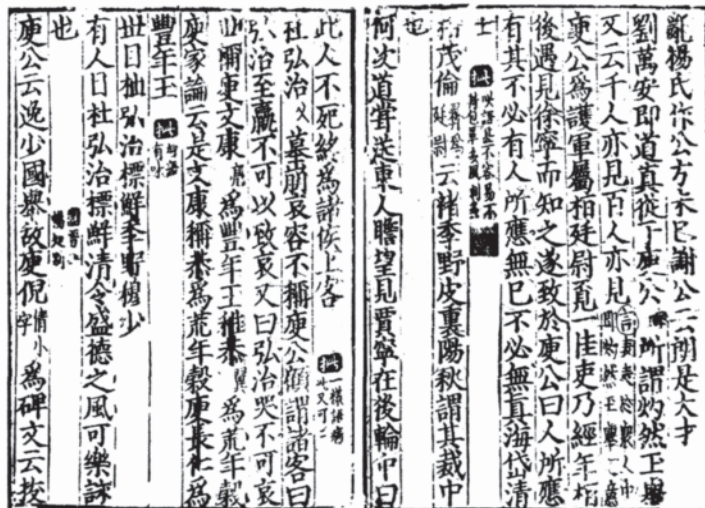 亂楊氏作公方未已謝公云朗是大才
劉萬安即道真從子庾公所謂灼然玉舉
又云千人亦見百人亦見
庾公爲護軍屬桓廷尉覓一佳吏乃經年桓
後遇見徐寧而知之遂致於庾公曰人所應
有其不必有人所應無已不必無真海岱清
士
桓茂倫云褚季野皮裏陽秋謂其裁中
也
何次道嘗送東人瞻望見賈寧在後輪中曰
此人不死終爲諸侯上客
杜弘治乂墓崩哀容不稱庾公顧謂諸客曰
弘治至羸不可以致哀又曰弘治哭不可哀
世稱庾文康亮爲豐年玉稚恭翼爲荒年穀
庾家論云是文康稱恭爲荒年穀庾長仁爲
豐年玉
世目杜弘治標鮮季野穆少
有人目杜弘治標鮮清令盛德之風可樂詠
也
庾公云逸少國舉故庾倪倩小字爲碑文云拔